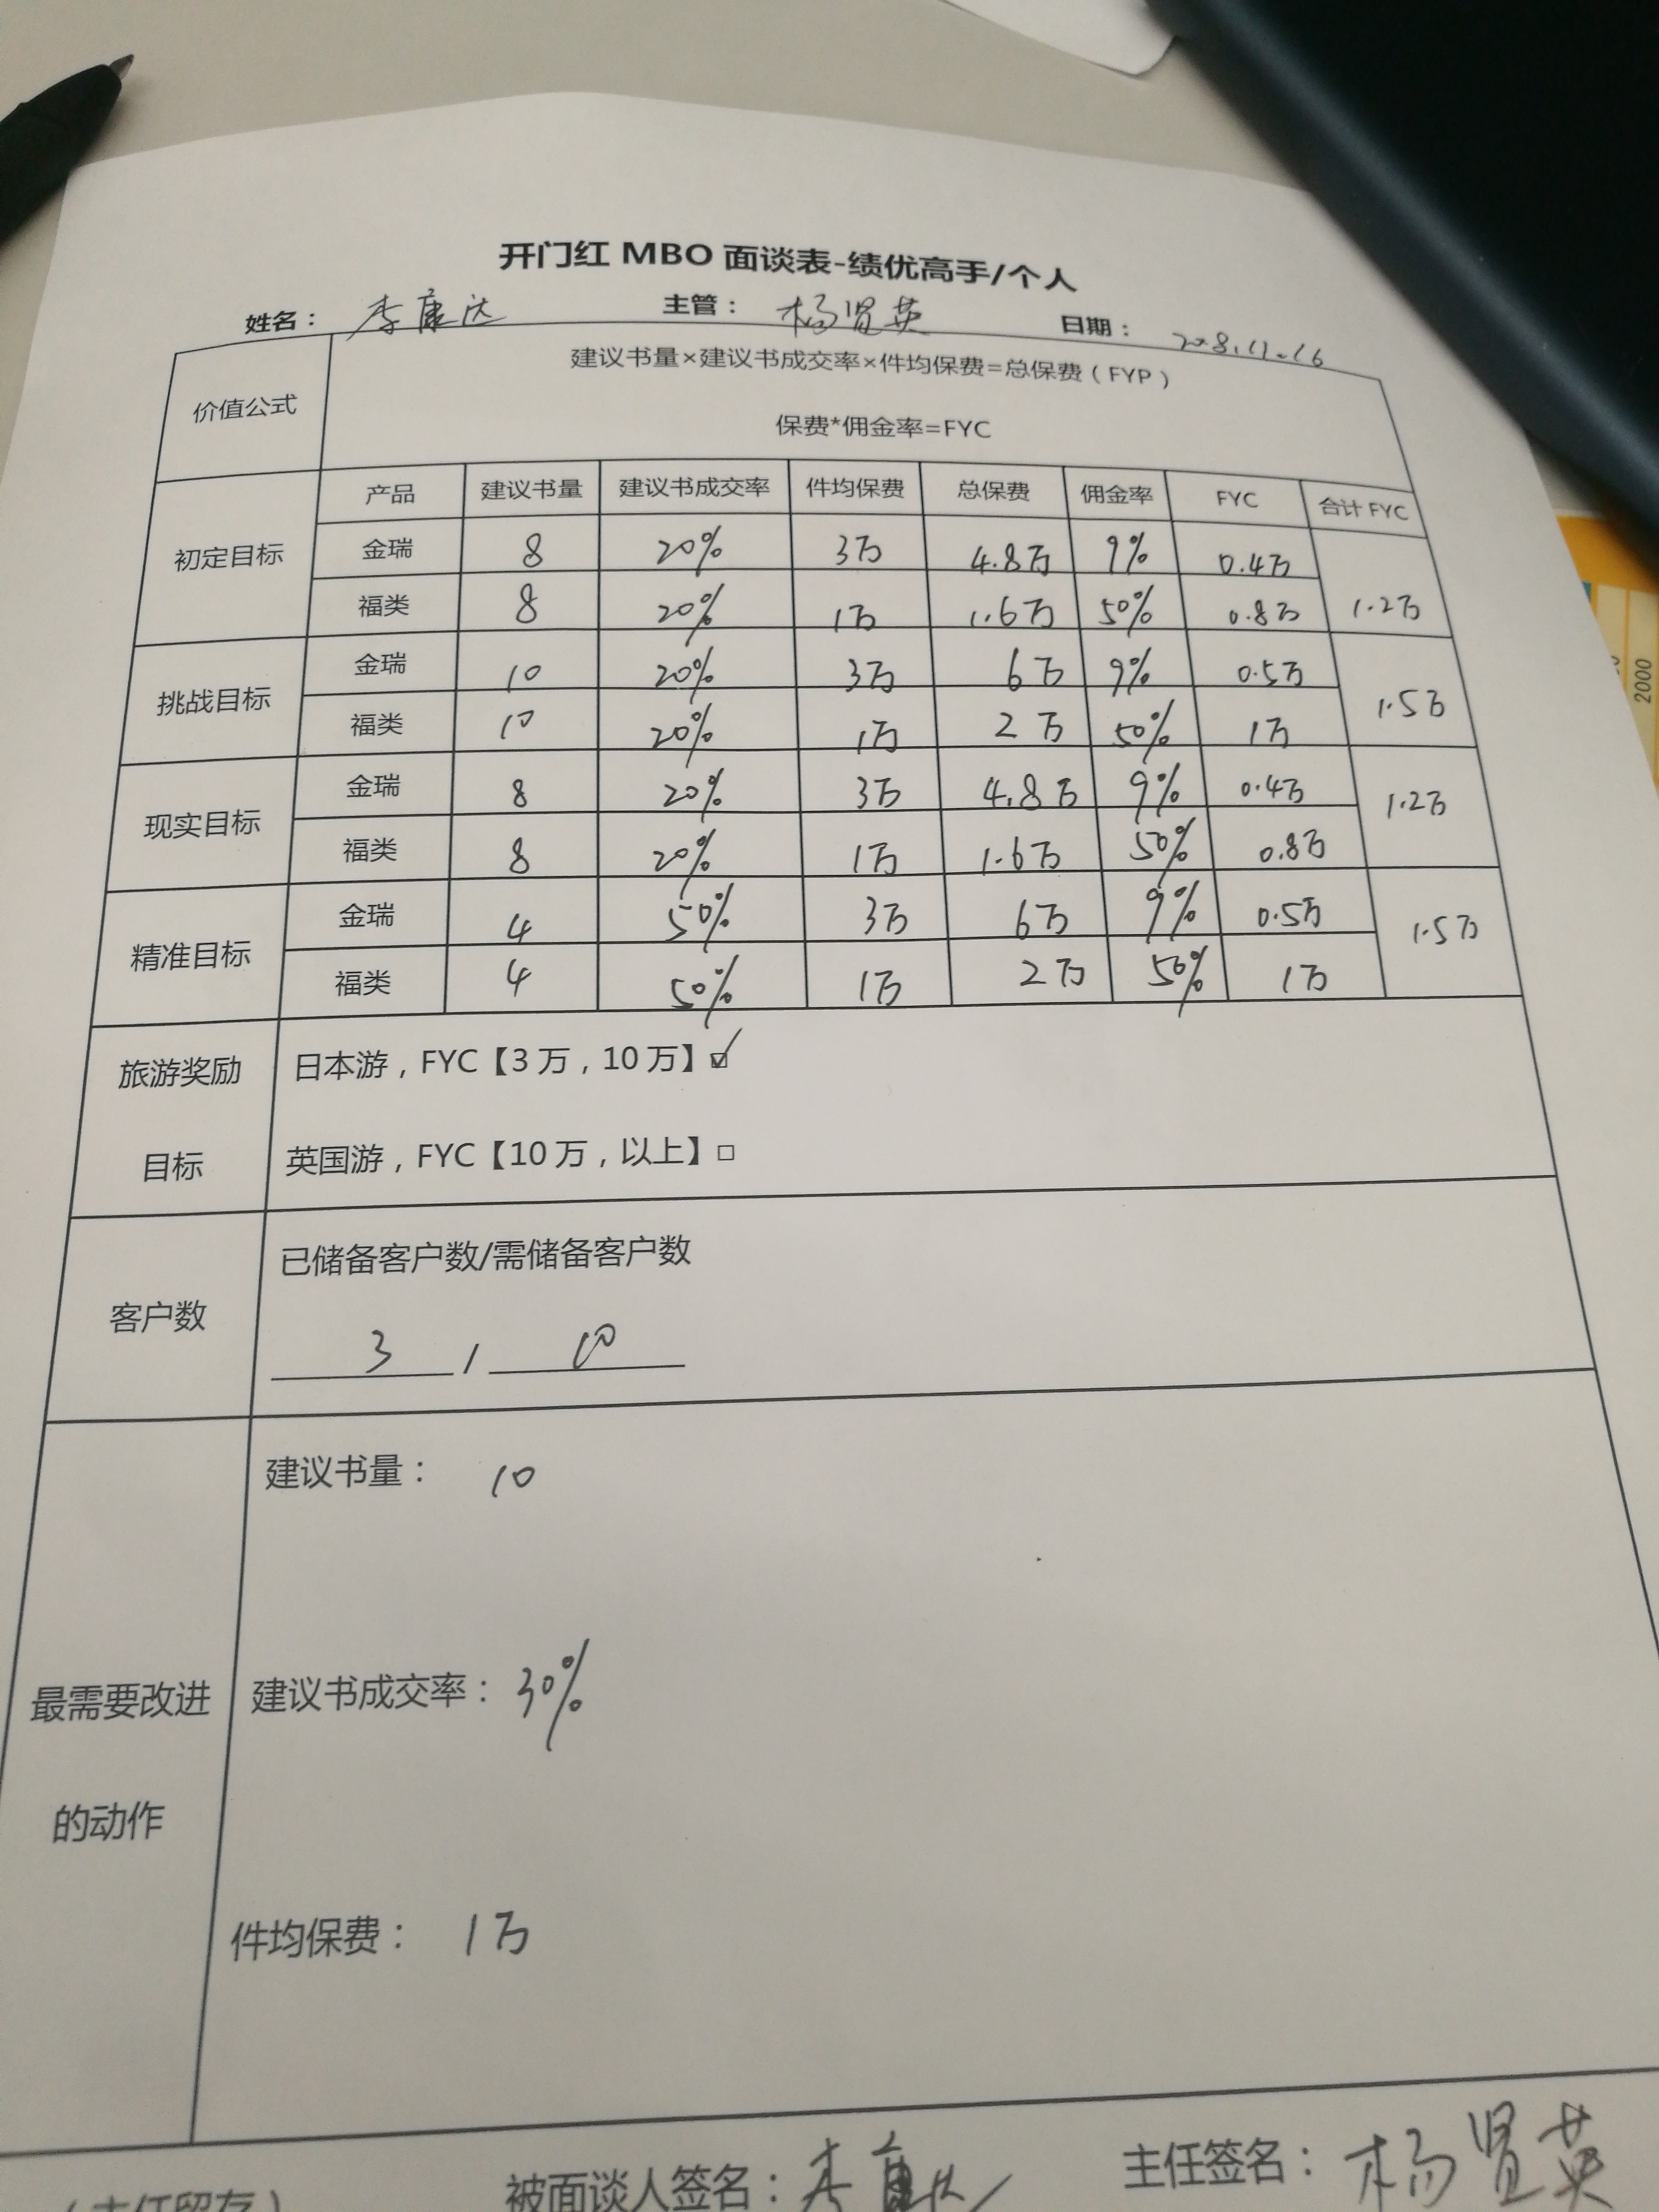 开门红 MBO 面谈表-绩优高手/个人
姓名： 李康达 主管： 杨贤英 日期： 2018.11.16
价值公式
建议书量×建议书成交率×件均保费=总保费（FYP）
保费*佣金率=FYC
产品 建议书量 建议书成交率 件均保费 总保费 佣金率 FYC 合计 FYC
初定目标
金瑞 8 20% 3万 4.8万 9% 0.4万
福类 8 20% 1万 1.6万 50% 0.8万 1.2万
挑战目标
金瑞 10 20% 3万 6万 9% 0.5万
福类 10 20% 1万 2万 50% 1万 1.5万
现实目标
金瑞 8 20% 3万 4.8万 9% 0.4万 1.2万
福类 8 20% 1万 1.6万 50% 0.8万
精准目标
金瑞 4 50% 3万 6万 9% 0.5万 1.5万
福类 4 50% 1万 2万 50% 1万
旅游奖励
目标
日本游，FYC【3万，10万】☑
英国游，FYC【10万，以上】□
客户数
已储备客户数/需储备客户数
3 / 10
最需要改进
的动作
建议书量： 10
建议书成交率：30%
件均保费： 1万
（主任留存） 被面谈人签名：李康达 主任签名：杨贤英
2000